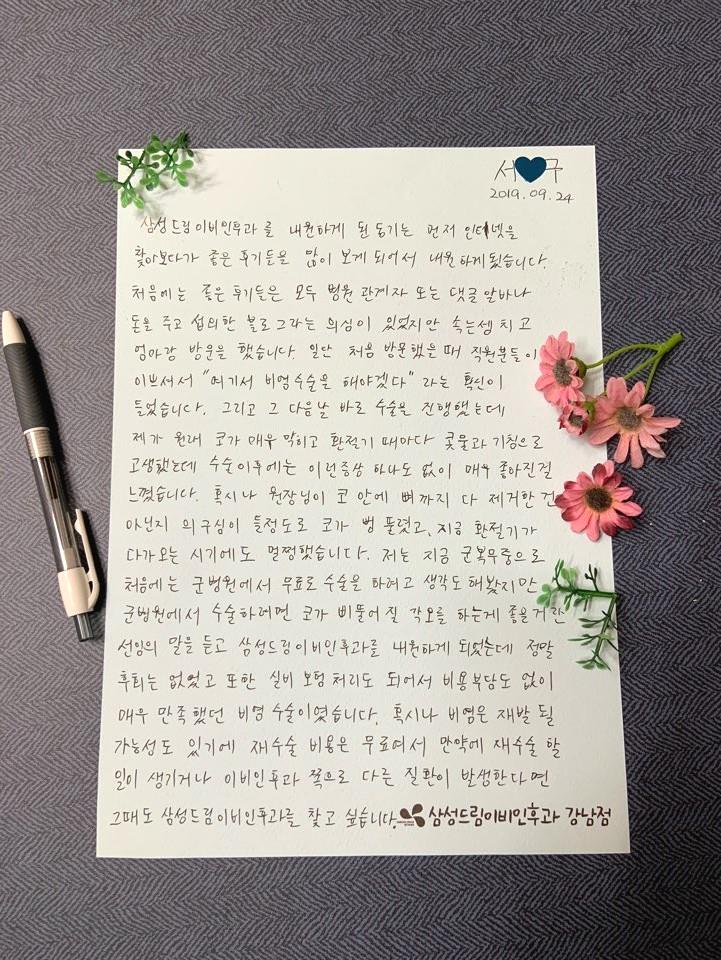 서 구
2019.09.24
삼성드림이비인후과를 내원하게 된 동기는 먼저 인터넷을
찾아보다가 좋은 후기들을 많이 보게 되어서 내원하게됬습니다.
처음에는 좋은 후기들은 모두 병원 관계자 또는 댓글알바나
돈을 주고 섭외한 블로그라는 의심이 있었지만 속는셈 치고
엄마랑 방문을 했습니다. 일단 처음 방문했은 때 직원분들이
이쁘셔서 "여기서 비염수술을 해야겠다" 라는 확신이
들었습니다. 그리고 그 다음날 바로 수술을 진행했는데
제가 원래 코가 매우 막히고 환절기 때마다 콧물과 기침으로
고생했는데 수술이후에는 이런증상 하나도 없이 매우 좋아진걸
느꼈습니다. 혹시나 원장님이 코 안에 뼈까지 다 제거한 건
아닌지 의구심이 들정도로 코가 뻥 뚫렸고, 지금 환절기가
다가오는 시기에도 멀쩡했습니다. 저는 지금 군복무중으로
처음에는 군병원에서 무료로 수술을 하려고 생각도 해봤지만
군병원에서 수술하려면 코가 삐뚤어질 각오를 하는게 좋을거란
선임의 말을 듣고 삼성드림이비인후과를 내원하게 되었는데 정말
후회는 없었고 또한 실비 보험 처리도 되어서 비용부담도 없이
매우 만족했던 비염 수술이였습니다. 혹시나 비염은 재발 될
가능성도 있기에 재수술 비용은 무료여서 만약에 재수술 할
일이 생기거나 이비인후과 쪽으로 다른 질환이 발생한다면
그때도 삼성드림이비인후과를 찾고 싶습니다. 삼성드림이비인후과 강남점